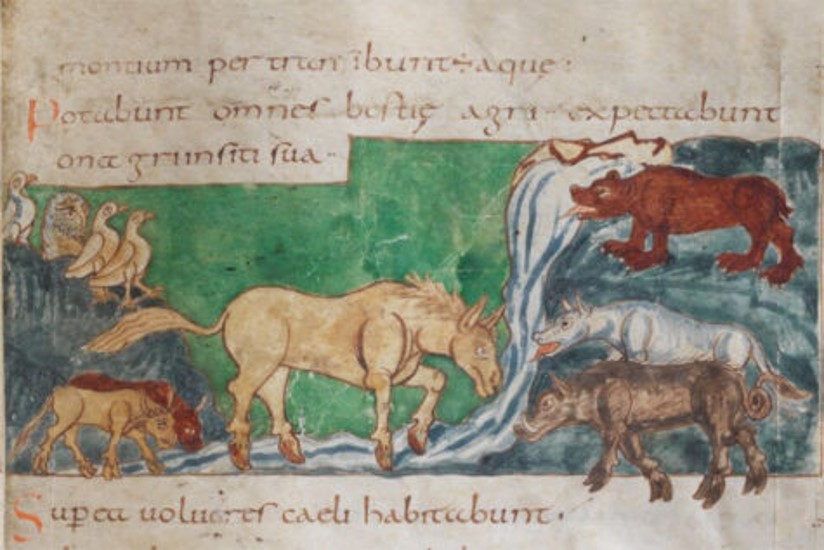 montium per transibunt aquę :
Potabunt omnes bestię agri · expectabunt
onagri insiti sua ·
Supea uolucres caeli habitabunt ·